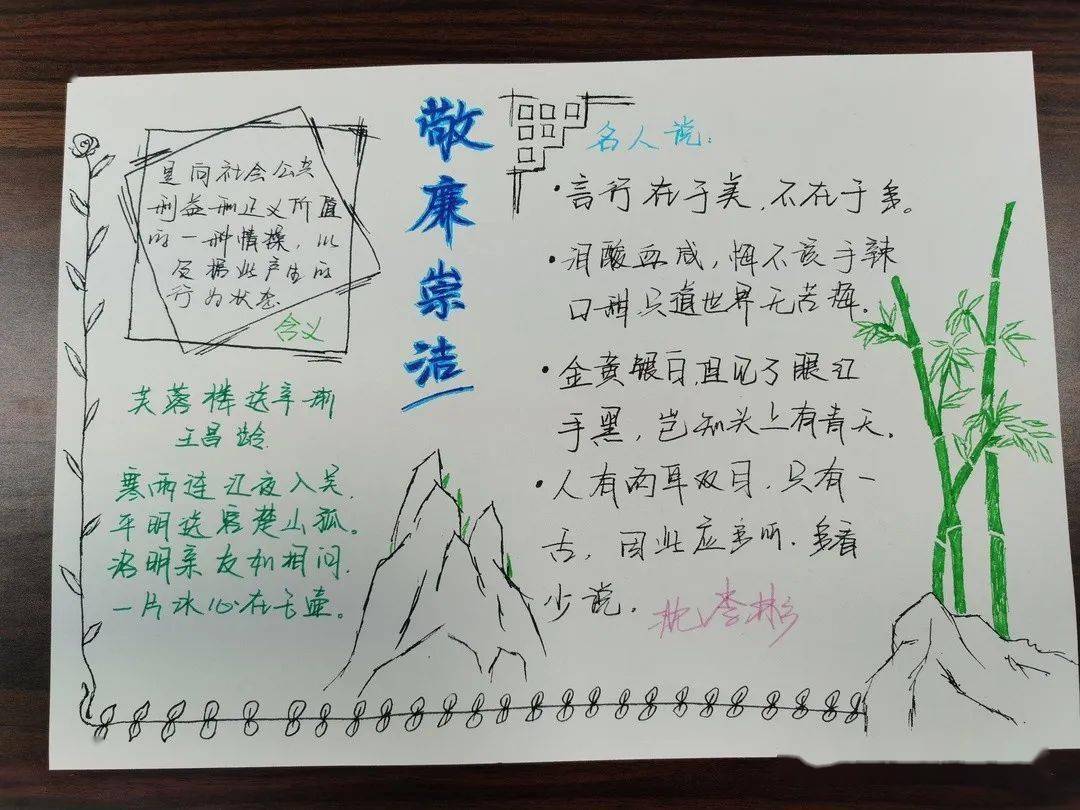 敬廉崇洁
是向社会公共
利益和正义价值
的一种情操,以
及据此产生的
行为状态
含义
芙蓉楼送辛渐
王昌龄
寒雨连江夜入吴,
平明送客楚山孤。
洛明亲友如相问,
一片冰心在玉壶。
名人说:
·言行在于美,不在于多。
·泪酸血咸,悔不该手辣
口甜只道世界无苦海.
·金黄银白,且见了眼红
手黑,岂知头上有青天.
·人有两耳双目,只有一
舌,因此应多听.多看
少说.
李彬